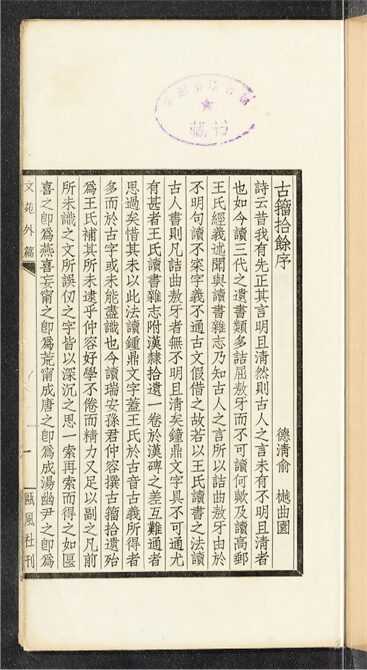 古籀拾餘序
德清俞 樾曲園
詩云昔我有先正其言明且清然則古人之言未有不明且清者
也如今讀三代之遺書類多詰屈敖牙而不可讀何歟及讀高郵
王氏經義述聞與讀書雜志乃知古人之言所以詰曲敖牙由於
不明句讀不寀字義不通古文假借之故若以王氏讀書之法讀
古人書則凡詰曲敖牙者無不明且清矣鐘鼎文字具不可通尤
有甚者王氏讀書雜志附漢隸拾遺一卷於漢碑之差互難通者
思過矣惜其未以此法讀鍾鼎文字蓋王氏於古音古義所得者
多而於古字或未能盡識也今讀瑞安孫君仲容撰古籀拾遺殆
爲王氏補其所未逮乎仲容好學不倦而精力又足以副之凡前
所未識之文所誤仞之字皆以深沉之思一索再索而得之如匽
喜之卽爲燕喜妄甯之卽爲荒甯成唐之卽爲成湯幽尹之卽爲
文苑外篇
一
甌風社刊
藏書